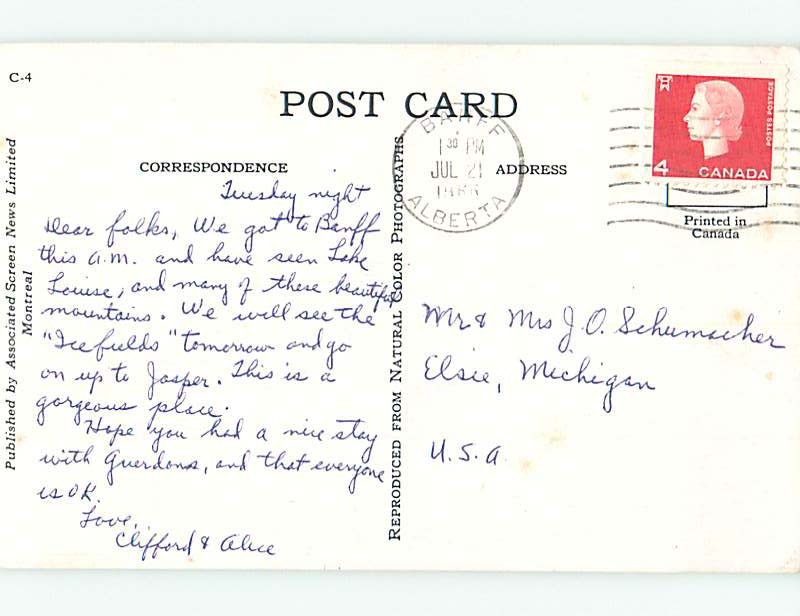 C-4
POST CARD
CORRESPONDENCE
ADDRESS
Published by Associated Screen News Limited
Montreal
REPRODUCED FROM NATURAL COLOR PHOTOGRAPHS
BANFF
1 30 PM
JUL 21
ALBERTA
POSTES POSTAGE
4 CANADA
Printed in
Canada
Tuesday night
Dear folks, We got to Banff
this a.m. and have seen Lake
Louise, and many of these beautiful
mountains. We will see the
"Icefields" tomorrow and go
on up to Jasper. This is a
gorgeous place.
Hope you had a nice stay
with Guerdons, and that everyone
is OK.
Love,
Clifford & Alice
Mr & Mrs J. O. Schumacher
Elsie, Michigan
U.S.A.